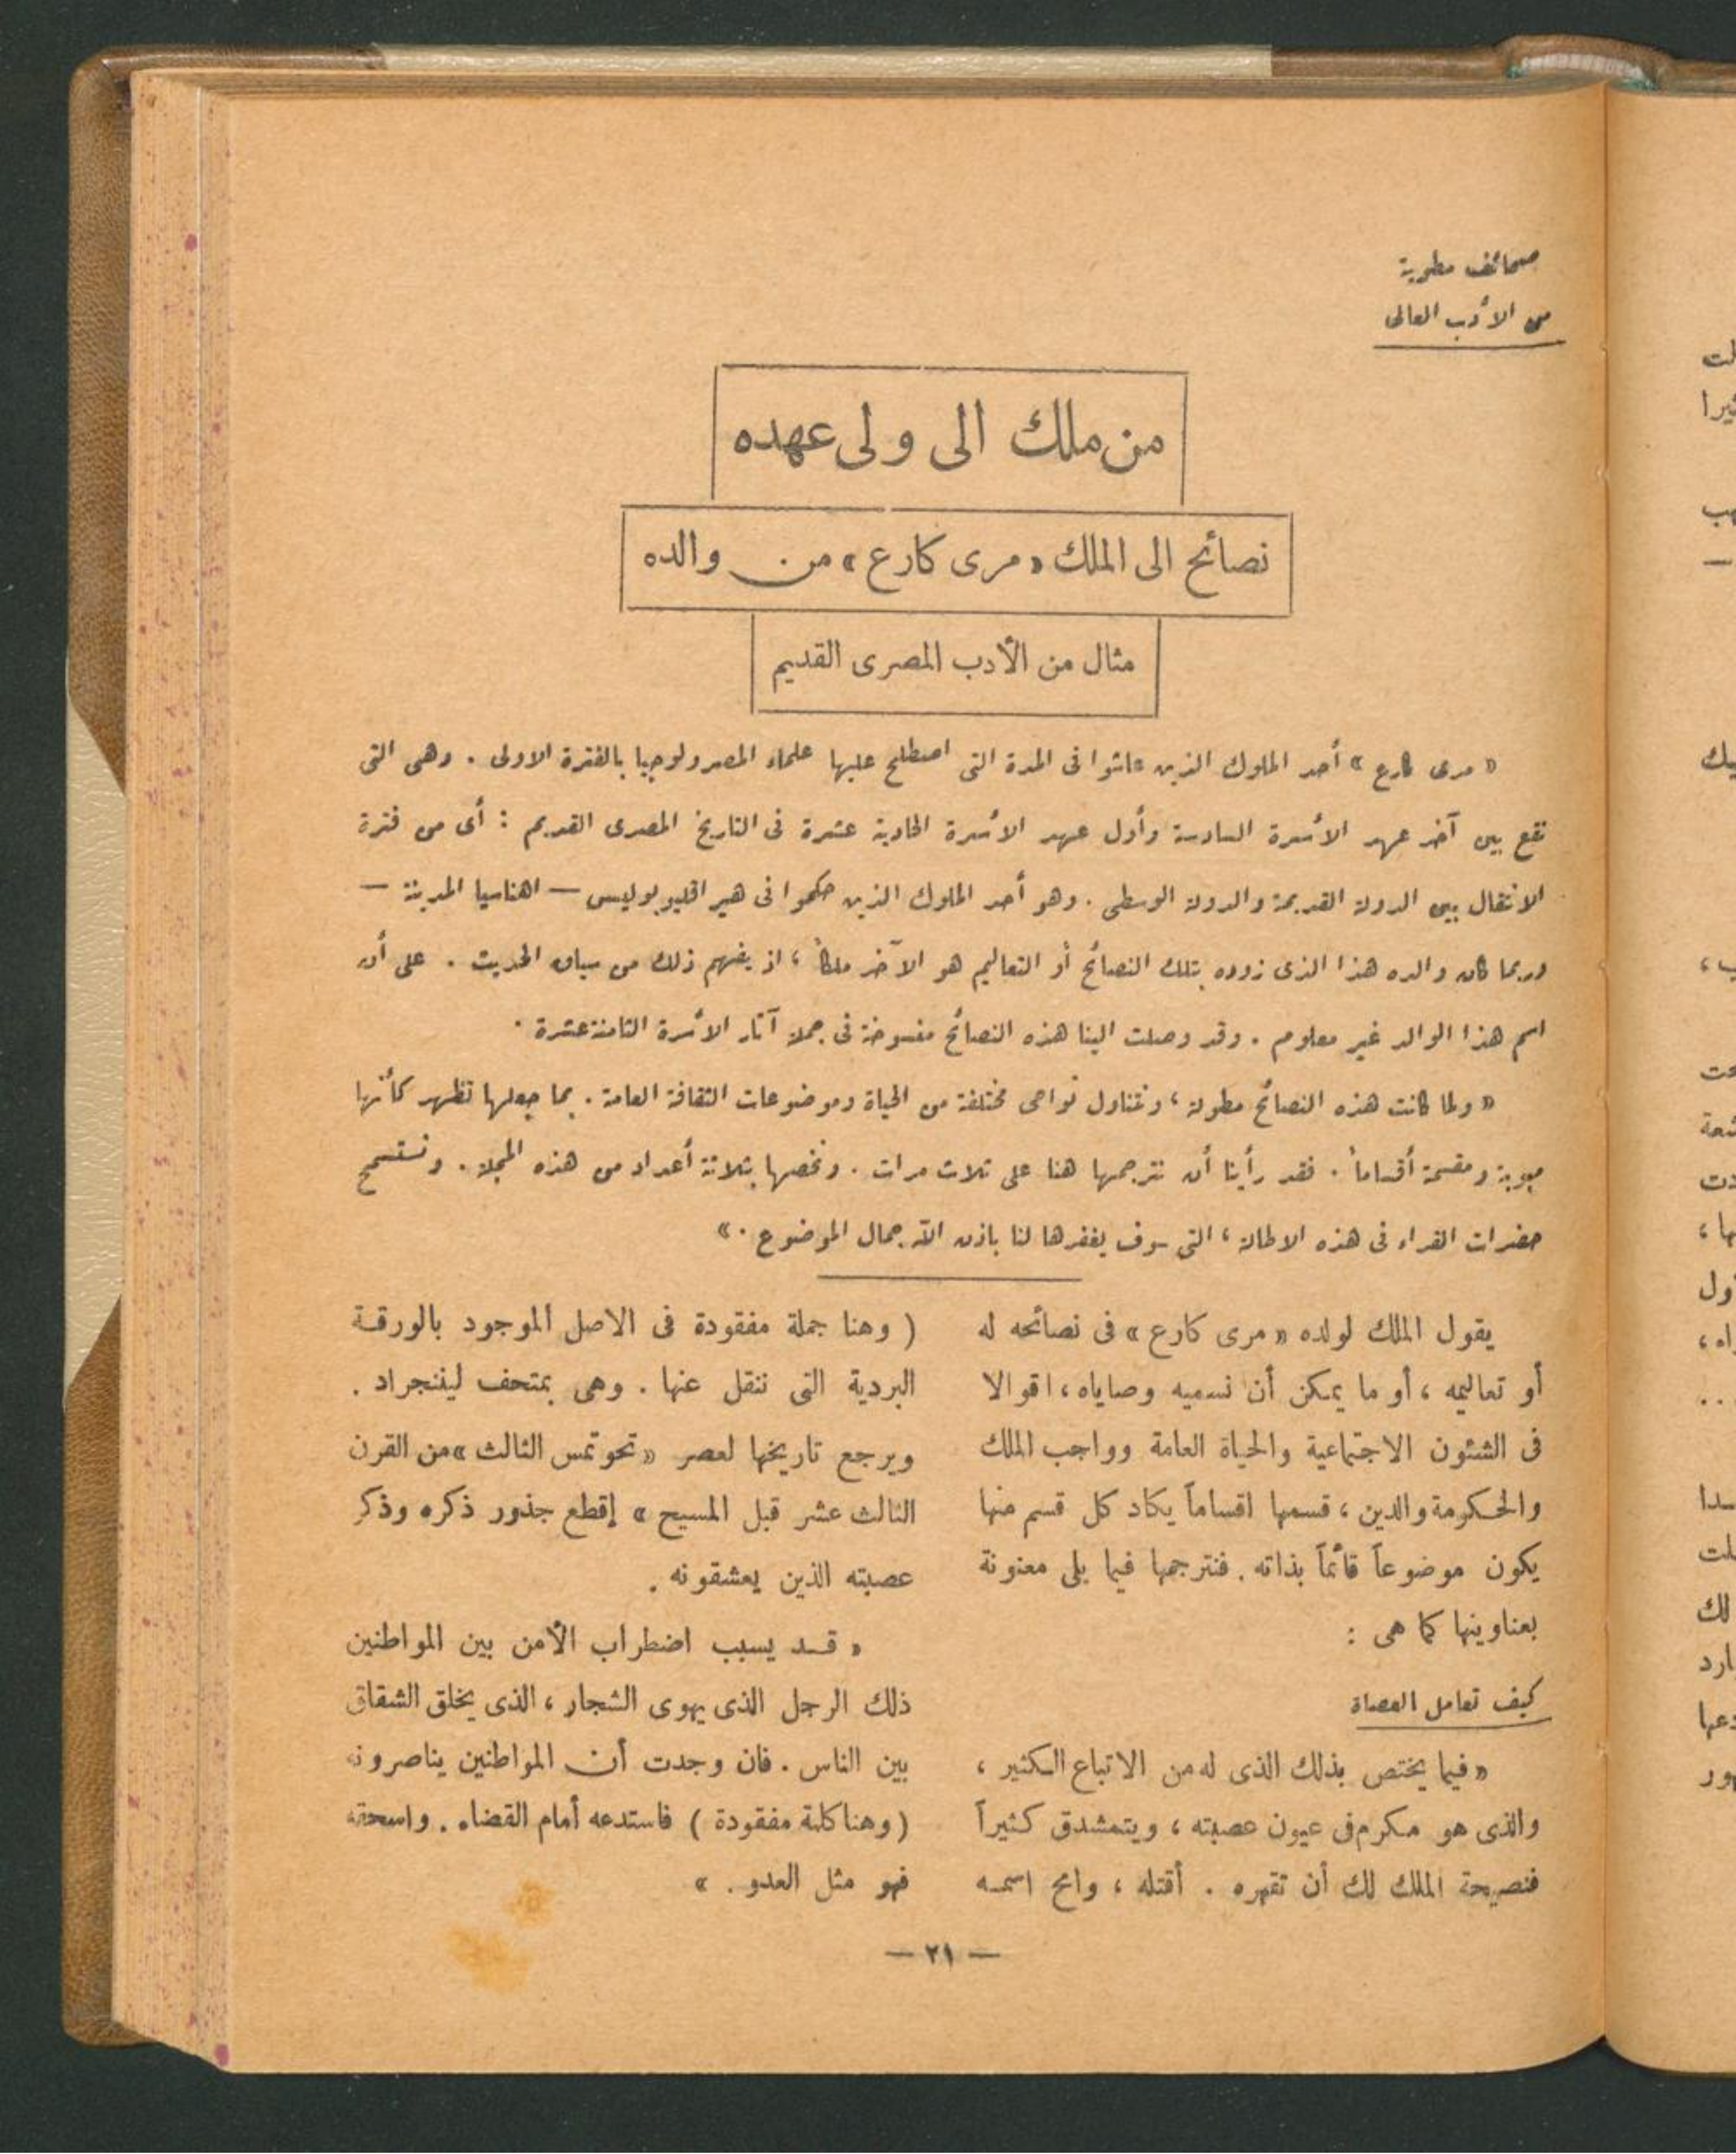 صحائف مطوية
من الأدب العالى
من ملك الى ولى عهده
نصائح الى الملك « مرى كارع » من والده
مثال من الأدب المصرى القديم
« مرى كارع » أحد الملوك الذين عاشوا فى المدة التى اصطلح عليها علماء المصرولوجيا بالفترة الاولى . وهى التى
تقع بين آخر عهد الأسرة السادسة وأول عهد الأسرة الحادية عشرة فى التاريخ المصرى القديم : أى من فترة
الانتقال بين الدولة القديمة والدولة الوسطى . وهو أحد الملوك الذين حكموا فى هيراقليوبوليس — اهناسيا المدينة —
وربما كان والده هذا الذى زوده بتلك النصائح أو التعاليم هو الآخر ملكاً ، اذ يفهم ذلك من سياق الحديث . على أن
اسم هذا الوالد غير معلوم . وقد وصلت الينا هذه النصائح منسوخة فى جملة آثار الأسرة الثامنة عشرة .
« ولما كانت هذه النصائح مطولة ، وتتناول نواحى مختلفة من الحياة وموضوعات الثقافة العامة . مما جعلها تظهر كأنها
مبوبة ومقسمة أقساماً . فقد رأينا أن نترجمها هنا على ثلاث مرات . ونخصها بثلاثة أعداد من هذه المجلة . ونستسمح
حضرات القراء فى هذه الاطالة ، التى سوف يغفرها لنا باذن الله جمال الموضوع . »
يقول الملك لولده « مرى كارع » فى نصائحه له
أو تعاليمه ، أو ما يمكن أن نسميه وصاياه ، اقوالا
فى الشئون الاجتماعية والحياة العامة وواجب الملك
والحكومة والدين ، قسمها اقساماً يكاد كل قسم منها
يكون موضوعاً قائماً بذاته . فنترجمها فيما يلى معنونة
بعناوينها كما هى :
كيف تعامل العصاة
« فيما يختص بذلك الذى له من الاتباع الكثير ،
والذى هو مكرم فى عيون عصبته ، ويتمشدق كثيراً
فنصيحة الملك لك أن تقهره . أقتله ، وامح اسمه
( وهنا جملة مفقودة فى الاصل الموجود بالورقة
البردية التى ننقل عنها . وهى بمتحف ليننجراد .
ويرجع تاريخها لعصر « تحوتمس الثالث » من القرن
الثالث عشر قبل المسيح » إقطع جذور ذكره وذكر
عصبته الذين يعشقونه .
« قد يسبب اضطراب الأمن بين المواطنين
ذلك الرجل الذى يهوى الشجار ، الذى يخلق الشقاق
بين الناس . فان وجدت أن المواطنين يناصرونه
( وهنا كلمة مفقودة ) فاستدعه أمام القضاء . واسحقه
فهو مثل العدو . »
— ٢١ —